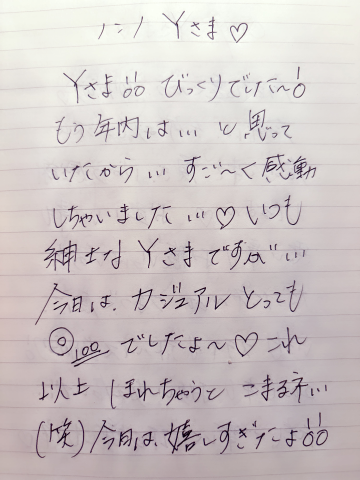 ハニハ Yさま♡
Yさま!! びっくりでした〜!
もう年内は... と思って
いたから... すご〜く感動
しちゃいました...♡いつも
紳士な Yさまですが...
今日は、カジュアル とっても
◎100 でしたよ〜♡これ
以上 ほれちゃうと こまるネ...
(笑)今日は、嬉しすぎたよ!!